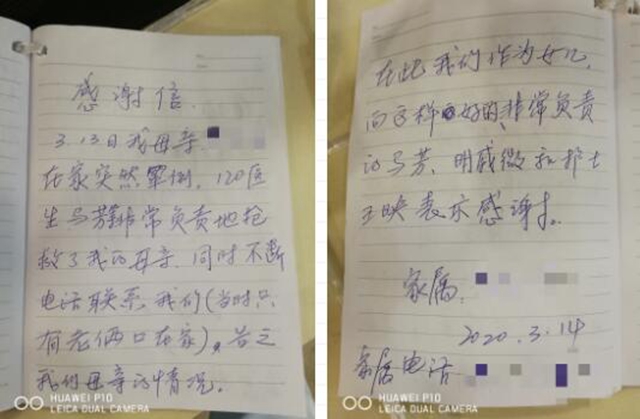 感谢信
3.13日我母亲
在家突然晕倒，120医
生马芳非常负责地抢
救了我的母亲，同时不断
电话联系，我们(当时只
有老俩口在家)，告之
我们母亲的情况。
HUAWEI P10
LEICA DUAL CAMERA
在此我们作为女儿，
向这样好的、非常负责
的马芳、明感微和护士
王映表示感谢。
家属
2020.3.14
家属电话
HUAWEI P10
LEICA DUAL CAMERA